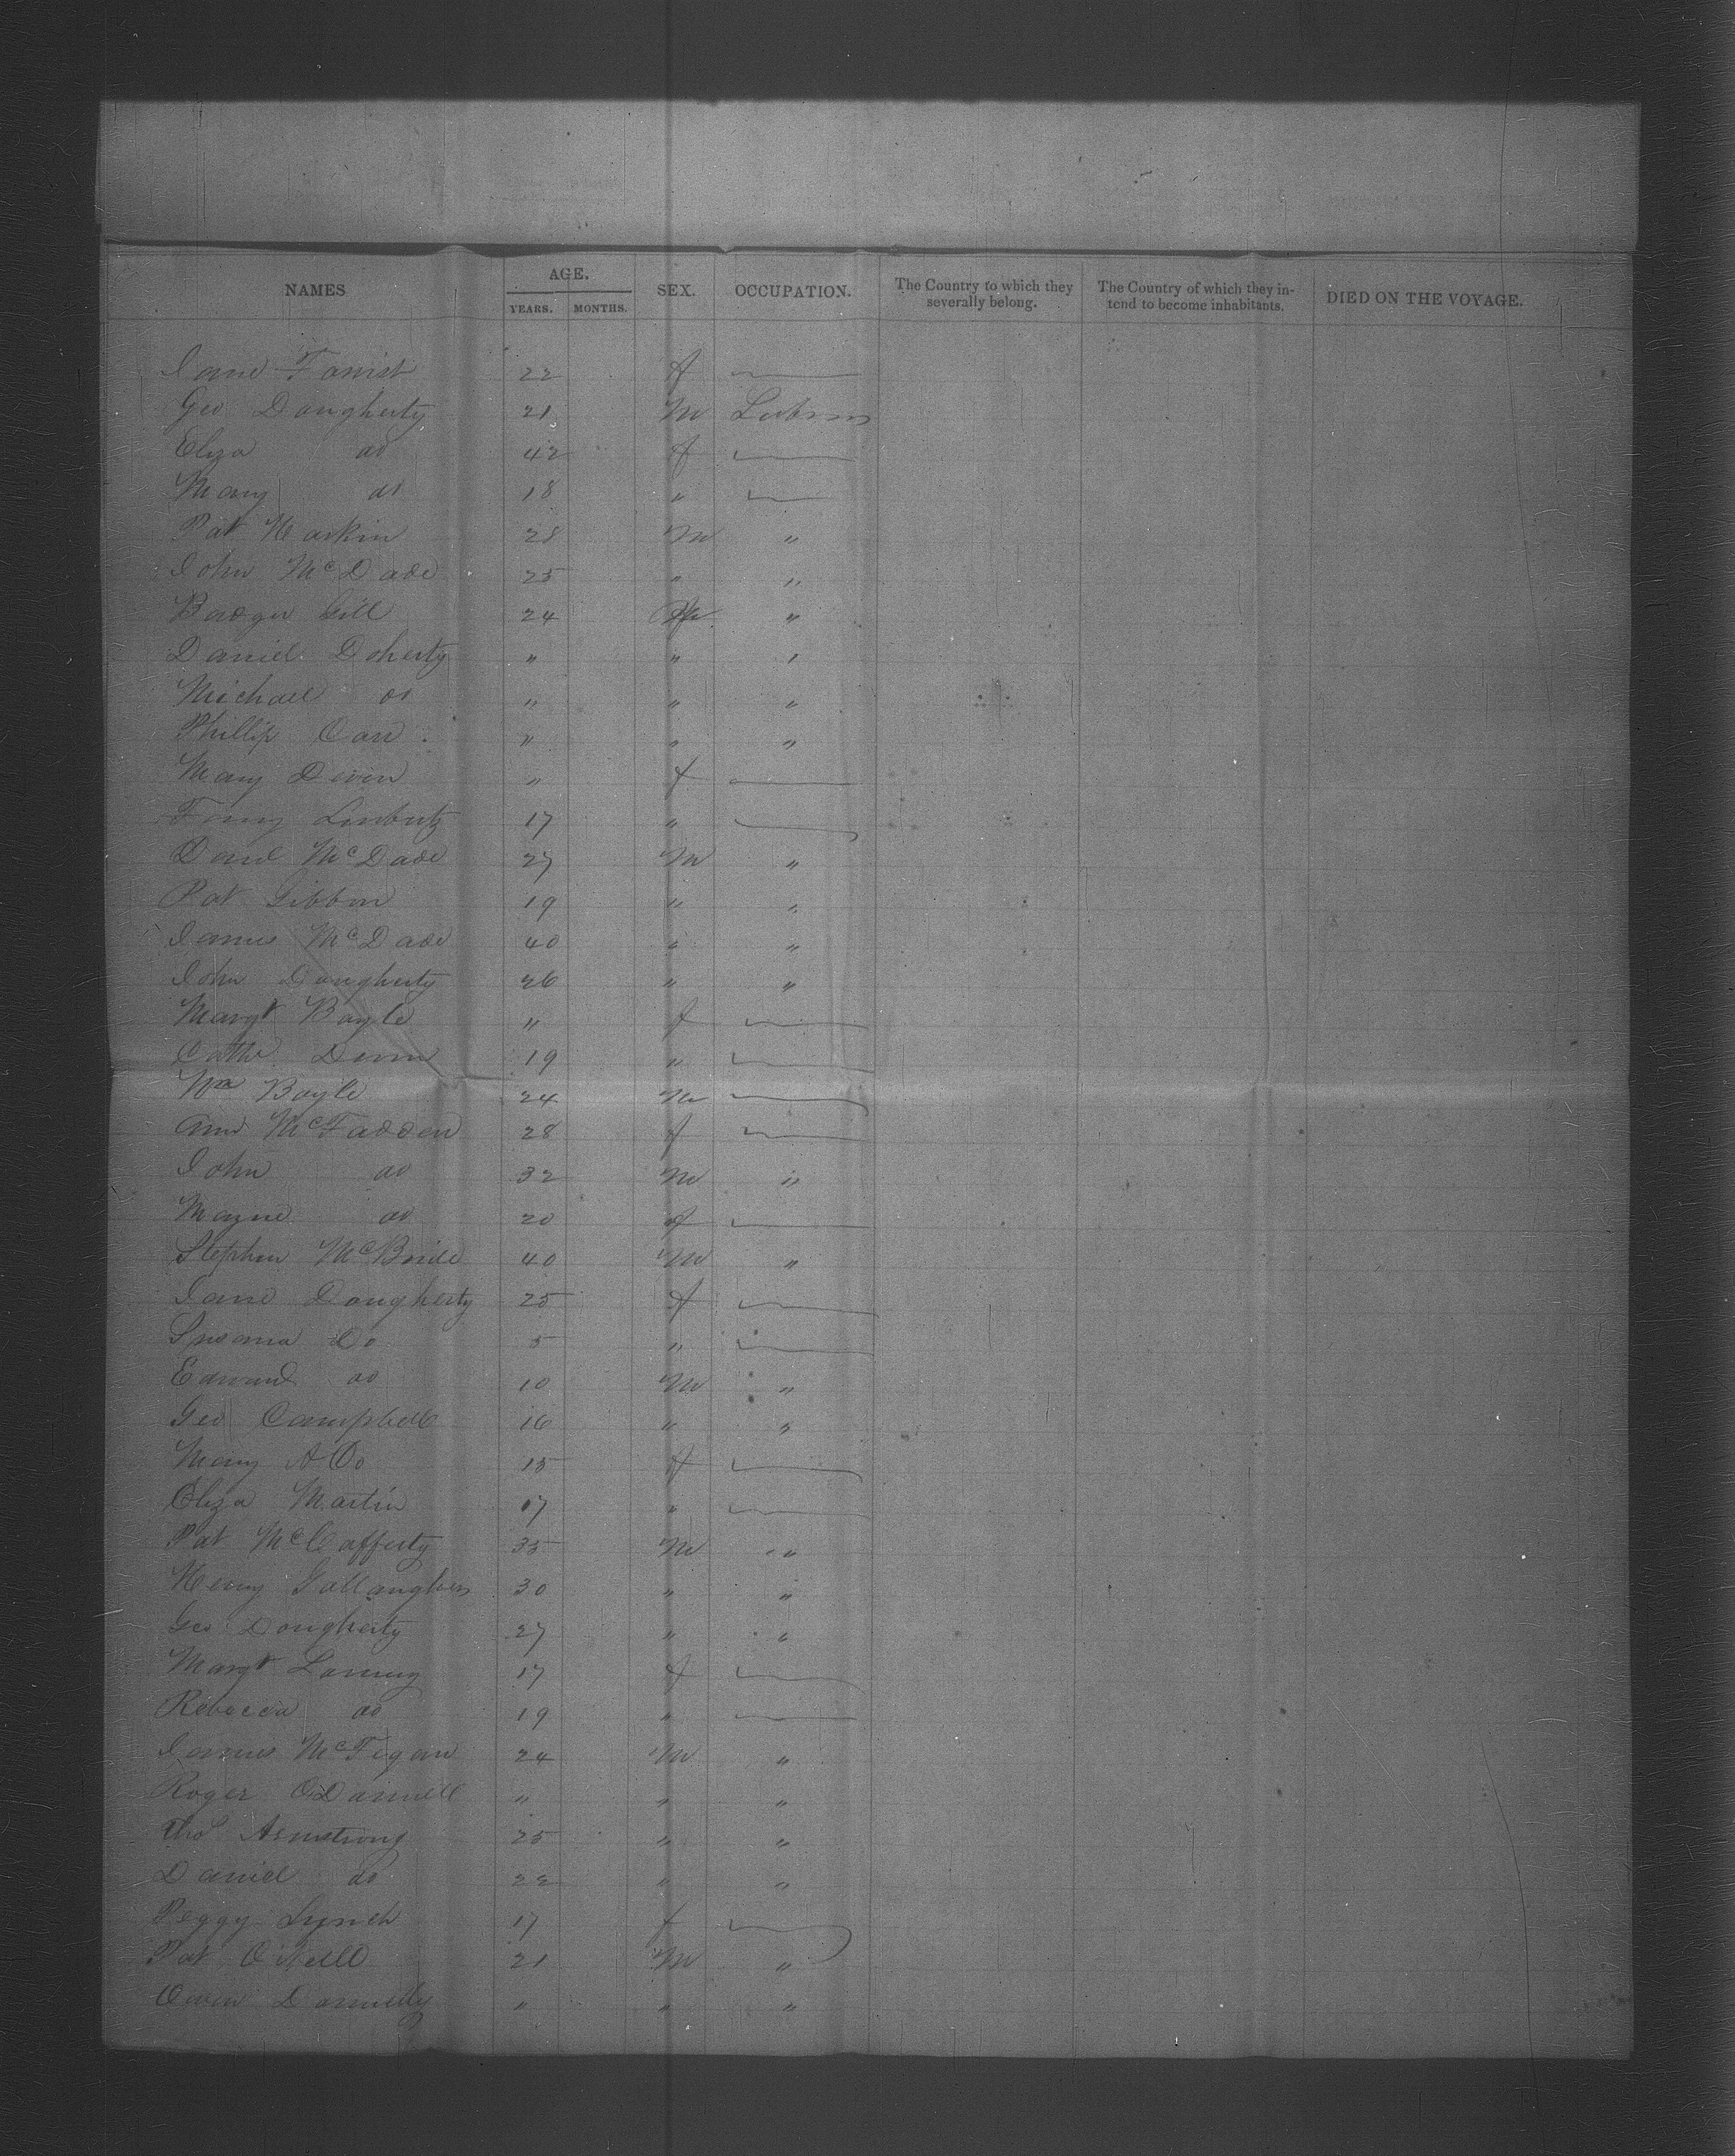 NAMES AGE. YEARS. MONTHS. SEX. OCCUPATION. The Country to which they severally belong. The Country of which they intend to become inhabitants. DIED ON THE VOYAGE.
Jane 22 f
Geo Dougherty 21 M
Eliza do 42 f
Mary do 18 "
Pat Harkin 28 M "
John McDade 25 " "
Gill 24 "
Daniel Doherty " " "
Michael do " " "
Phillip Carr " " "
Mary Devin " f
17 "
McDade 27 M "
Pat Gibbon 19 " "
James McDade 40 " "
John Dougherty 26 " "
Margt Boyle " f
Cathe 19 "
Wm Boyle 24 M
Ann McFadden 28 f
John do 32 M "
do 20 f
Stephen McBride 40 M "
Jane Dougherty 25 f
Susanna Do 5 "
Edward do 10 M "
Geo Campbell 16 " "
Mary A Do 15 f
Eliza Martin 17 "
Pat McCafferty 35 M "
Henry 30 " "
Geo Dougherty 27 " "
Margt 17 f
Rebecca do 19 "
James 24 M "
Roger O'Donnell " " "
Thos Armstrong 25 " "
Daniel do 22 " "
Peggy Lynch 17 f
Pat O'Neill 21 M "
Owen Donnelly " " "